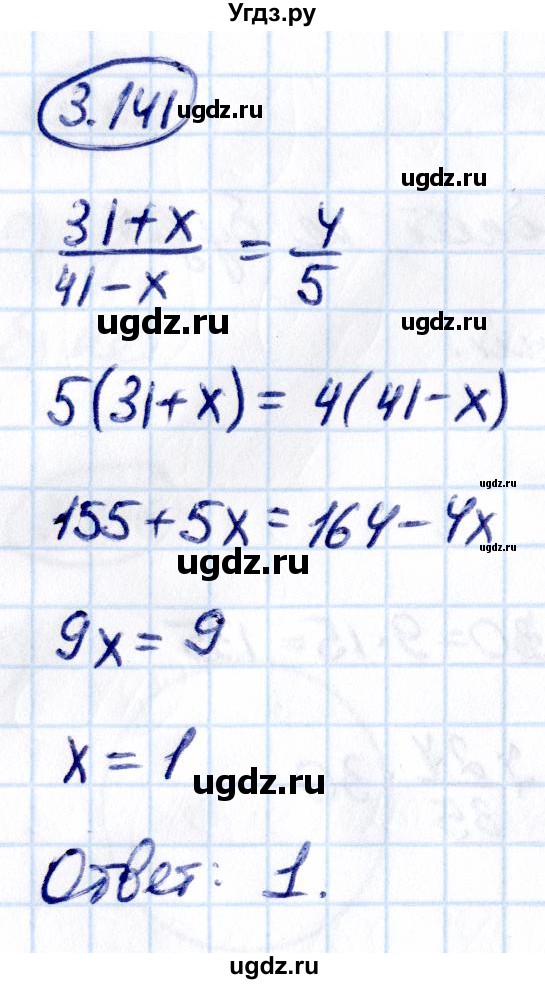 Угдз.ру
3.141
ugdz.ru
ugdz.ru
(31+x)/(41-x) = 4/5
ugdz.ru
ugdz.ru
5(31+x) = 4(41-x)
ugdz.ru
155+5x = 164-4x
ugdz.ru
ugdz.ru
9x = 9
x = 1
ugdz.ru
ugdz.ru
Ответ: 1.
ugdz.ru